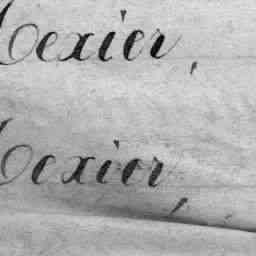 Lexier,
Lexier,